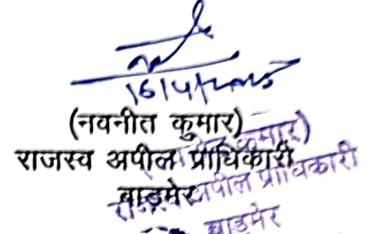 16/4/2025
(नवनीत कुमार)
राजस्व अपील प्राधिकारी
बाड़मेर
कुमार)
अपील प्राधिकारी
बाड़मेर